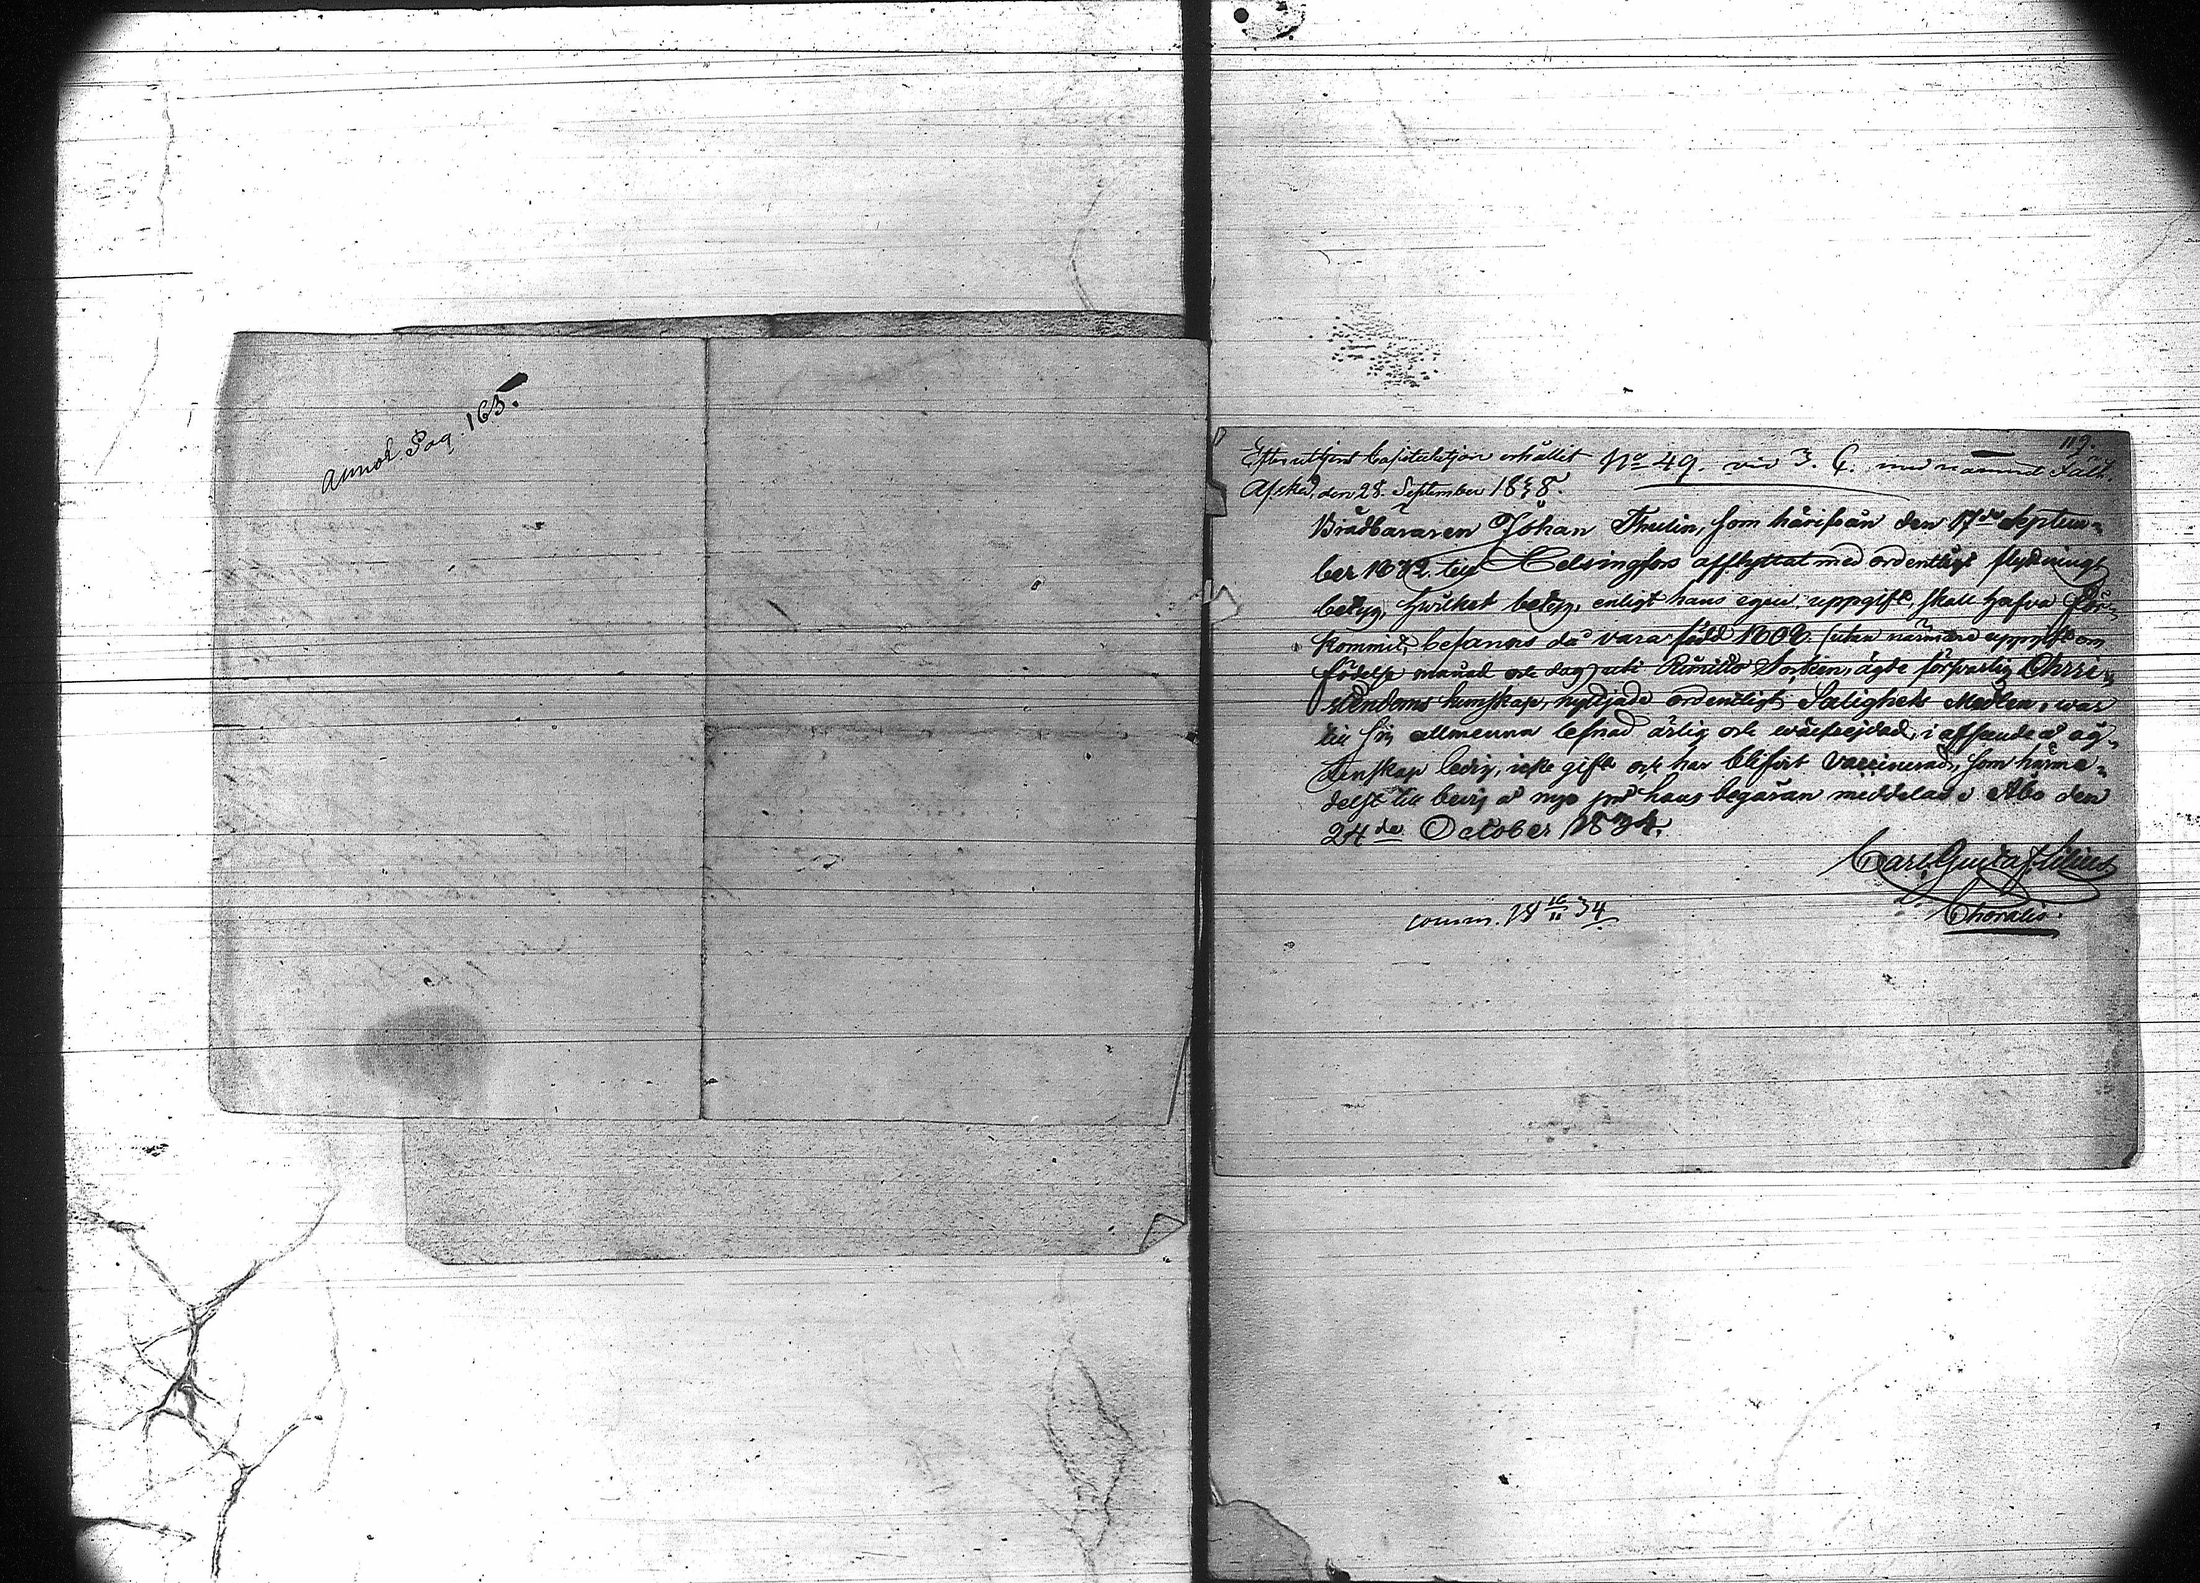 Annot. Pag. 163.
119.
Efter uttjent Capitulation erhållit
Afsked, den 28. September 1838.
No 49. vid 3. C.
Brädbäraren Johan Thulin, som härifrån den 17de Septem-
ber 1832 till Helsingfors afflyttat med ordentligt flyttnings
betyg, hvilket betyg, enligt hans egen uppgift, skall hafva för-
kommit, befanns då vara född 1808 (utan närmare uppgift om
födelse månad och dag) uti Socken, ägde försvarlig Chri-
stendoms kunskap, nyttjade ordentligt Salighets Medlen, war
till sin allmenna lefnad ärlig och, i afseende å äg-
tenskap ledig, icke gift och har blifvit vaccinerad, som härme-
delst till bevis å nyo på hans begäran meddelas. Åbo den
24de October 1834.
Carl Gustaf
comm. 18 16/11 34